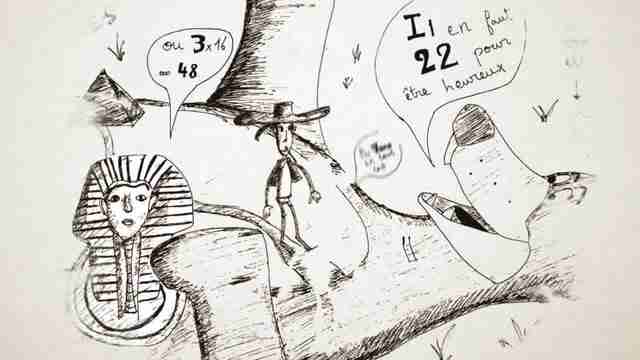 ou 3x16
= 48
Il en faut
22 pour
être heureux